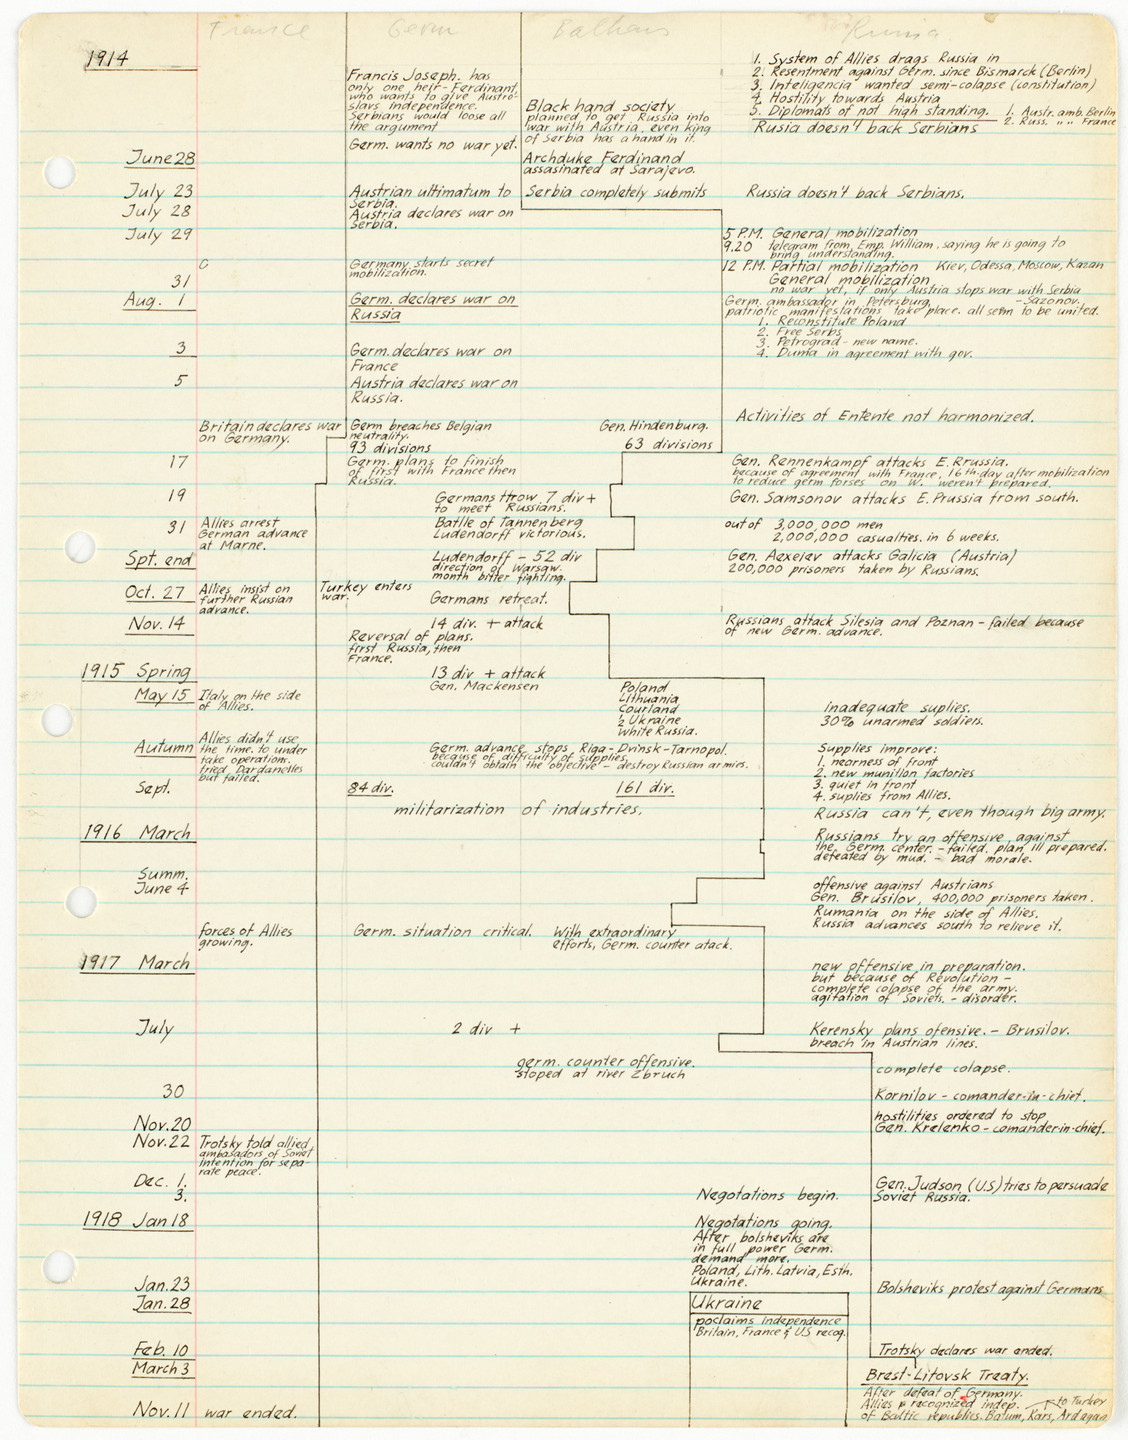 France Germ Balkans Russia
1914
1. System of Allies drags Russia in
2. Resentment against Germ. since Bismarck (Berlin)
3. Inteligencia wanted semi-colapse (constitution)
4. Hostility towards Austria
5. Diplomats of not high standing. 1. Austr. amb. Berlin
2. Russ. " " France
Rusia doesn't back Serbians
Francis Joseph. has
only one heir - Ferdinant,
who wants to give Austro-
slavs independence.
Serbians would loose all
the argument
Germ. wants no war yet.
Black hand society
planned to get Russia into
war with Austria, even king
of Serbia has a hand in it.
June 28
Archduke Ferdinand
assasinated at Sarajevo.
July 23
Austrian ultimatum to
Serbia.
Serbia completely submits
Russia doesn't back Serbians.
July 28
Austria declares war on
Serbia.
July 29
5 P.M. General mobilization
9.20 telegram from Emp. William. saying he is going to
bring understanding.
Germany starts secret
mobilization.
12 P.M. Partial mobilization Kiev, Odessa, Moscow, Kazan
31
General mobilization
no war yet, if only Austria stops war with Serbia
- Sazonov.
Aug. 1
Germ. declares war on
Russia
Germ. ambassador in Petersburg.
patriotic manifestations take place. all seem to be united.
1. Reconstitute Poland
2. Free Serbs
3. Petrograd - new name.
4. Duma in agreement with gov.
3
Germ. declares war on
France
5
Austria declares war on
Russia.
Activities of Entente not harmonized.
Britain declares war
on Germany.
Germ breaches Belgian
neutrality.
93 divisions
Gen. Hindenburg.
63 divisions
17
Germ. plans to finish
of first with France then
Russia.
Gen. Rennenkampf attacks E. Prussia.
because of agreement with France, 16th day after mobilization
to reduce germ forses on W. weren't prepared.
19
Germans throw 7 div +
to meet Russians.
Gen. Samsonov attacks E. Prussia from south.
31
Allies arrest
German advance
at Marne.
Battle of Tannenberg
Ludendorff victorious.
out of 3,000,000 men
2,000,000 casualties. in 6 weeks.
Spt. end
Ludendorff - 52 div
direction of Warsaw.
month bitter fighting.
Gen. Aexejev attacks Galicia (Austria)
200,000 prisoners taken by Russians.
Oct. 27
Allies insist on
further Russian
advance.
Turkey enters
war.
Germans retreat.
Nov. 14
14 div. + attack
Reversal of plans.
first Russia, then
France.
Russians attack Silesia and Poznan - failed because
of new Germ. advance.
1915 Spring
13 div + attack
Gen. Mackensen
May 15
Italy on the side
of Allies.
Poland
Lithuania
Courland
½ Ukraine
White Russia.
inadequate suplies.
30% unarmed soldiers.
Autumn
Allies didn't use
the time. to under
take operations.
tried Dardanelles
but failed.
Germ. advance stops, Riga - Dvinsk - Tarnopol.
because of difficulty of supplies
couldn't obtain the objective - destroy Russian armies.
Supplies improve:
1. nearness of front
2. new munition factories
3. quiet in front
4. suplies from Allies.
Sept.
84 div.
161 div.
militarization of industries.
Russia can't, even though big army.
1916 March
Russians try an offensive against
the Germ. center. - failed. plan ill prepared.
defeated by mud. - bad morale.
Summ.
June 4
offensive against Austrians
Gen. Brusilov, 400,000 prisoners taken.
Rumania on the side of Allies.
Russia advances south to relieve it.
forces of Allies
growing.
Germ. situation critical. With extraordinary
efforts, Germ. counter atack.
1917 March
new offensive in preparation.
but because of Revolution -
complete colapse of the army.
agitation of Soviets. - disorder.
July
2 div +
Kerensky plans ofensive. - Brusilov.
breach in Austrian lines.
germ. counter offensive.
stoped at river Zbruch
complete colapse.
30
Kornilov - comander-in-chief.
Nov. 20
hostilities ordered to stop
Gen. Krelenko - comander-in-chief.
Nov. 22
Trotsky told allied
ambasadors of Soviet
intention for sepa-
rate peace.
Dec. 1.
Gen. Judson (U.S) tries to persuade
Soviet Russia.
3.
Negotations begin.
1918 Jan 18
Negotations going.
After bolsheviks are
in full power Germ.
demand more.
Poland, Lith. Latvia, Esth.
Ukraine.
Jan. 23
Bolsheviks protest against Germans
Jan. 28
Ukraine
poclaims independence
Britain, France & U.S recog.
Feb. 10
Trotsky declares war ended.
March 3
Brest-Litovsk Treaty.
After defeat of Germany.
Allies recognized indep. to Turkey
of Baltic republics. Batum, Kars, Ardagan
Nov. 11 war ended.